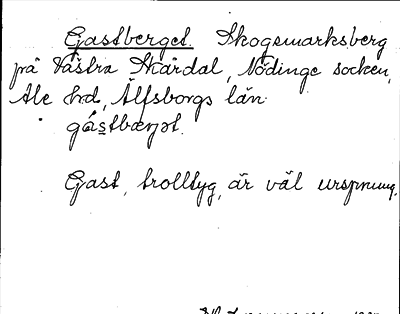 Gastberget. Skogsmarksberg
på Västra Skårdal, Nödinge socken,
Ale hd, Älfsborgs län.
gástbærjət.
Gast, trolltyg, är väl ursprung.